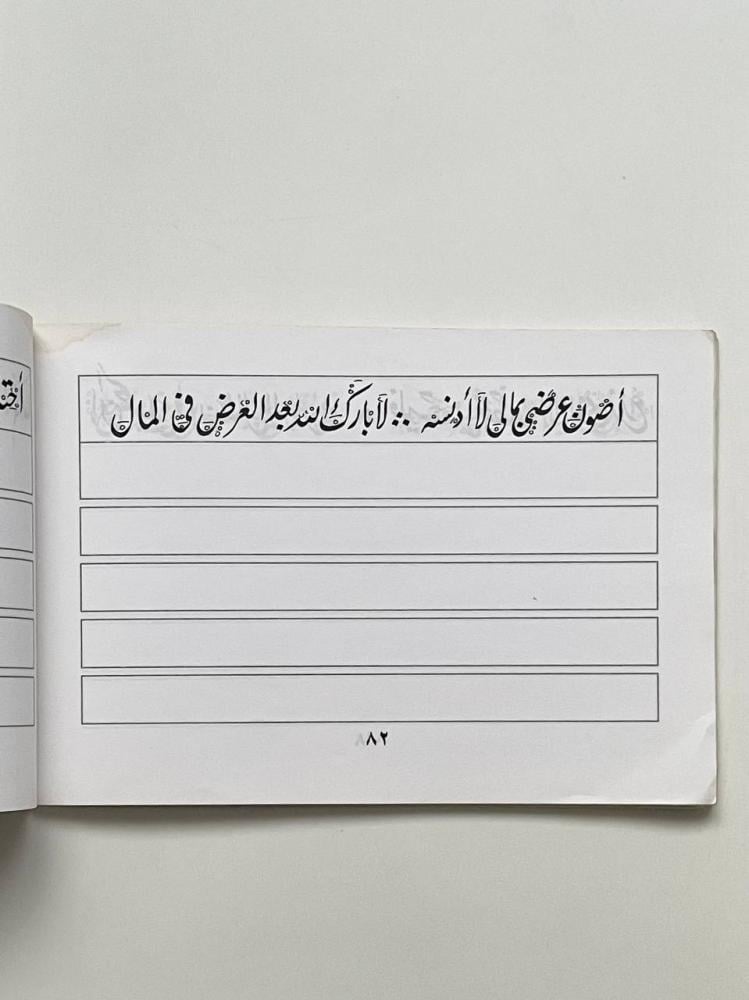 أصون عرضى بمالى لا أدنسه ∴ لا بارك الله بعد العرض فى المال
٨٢